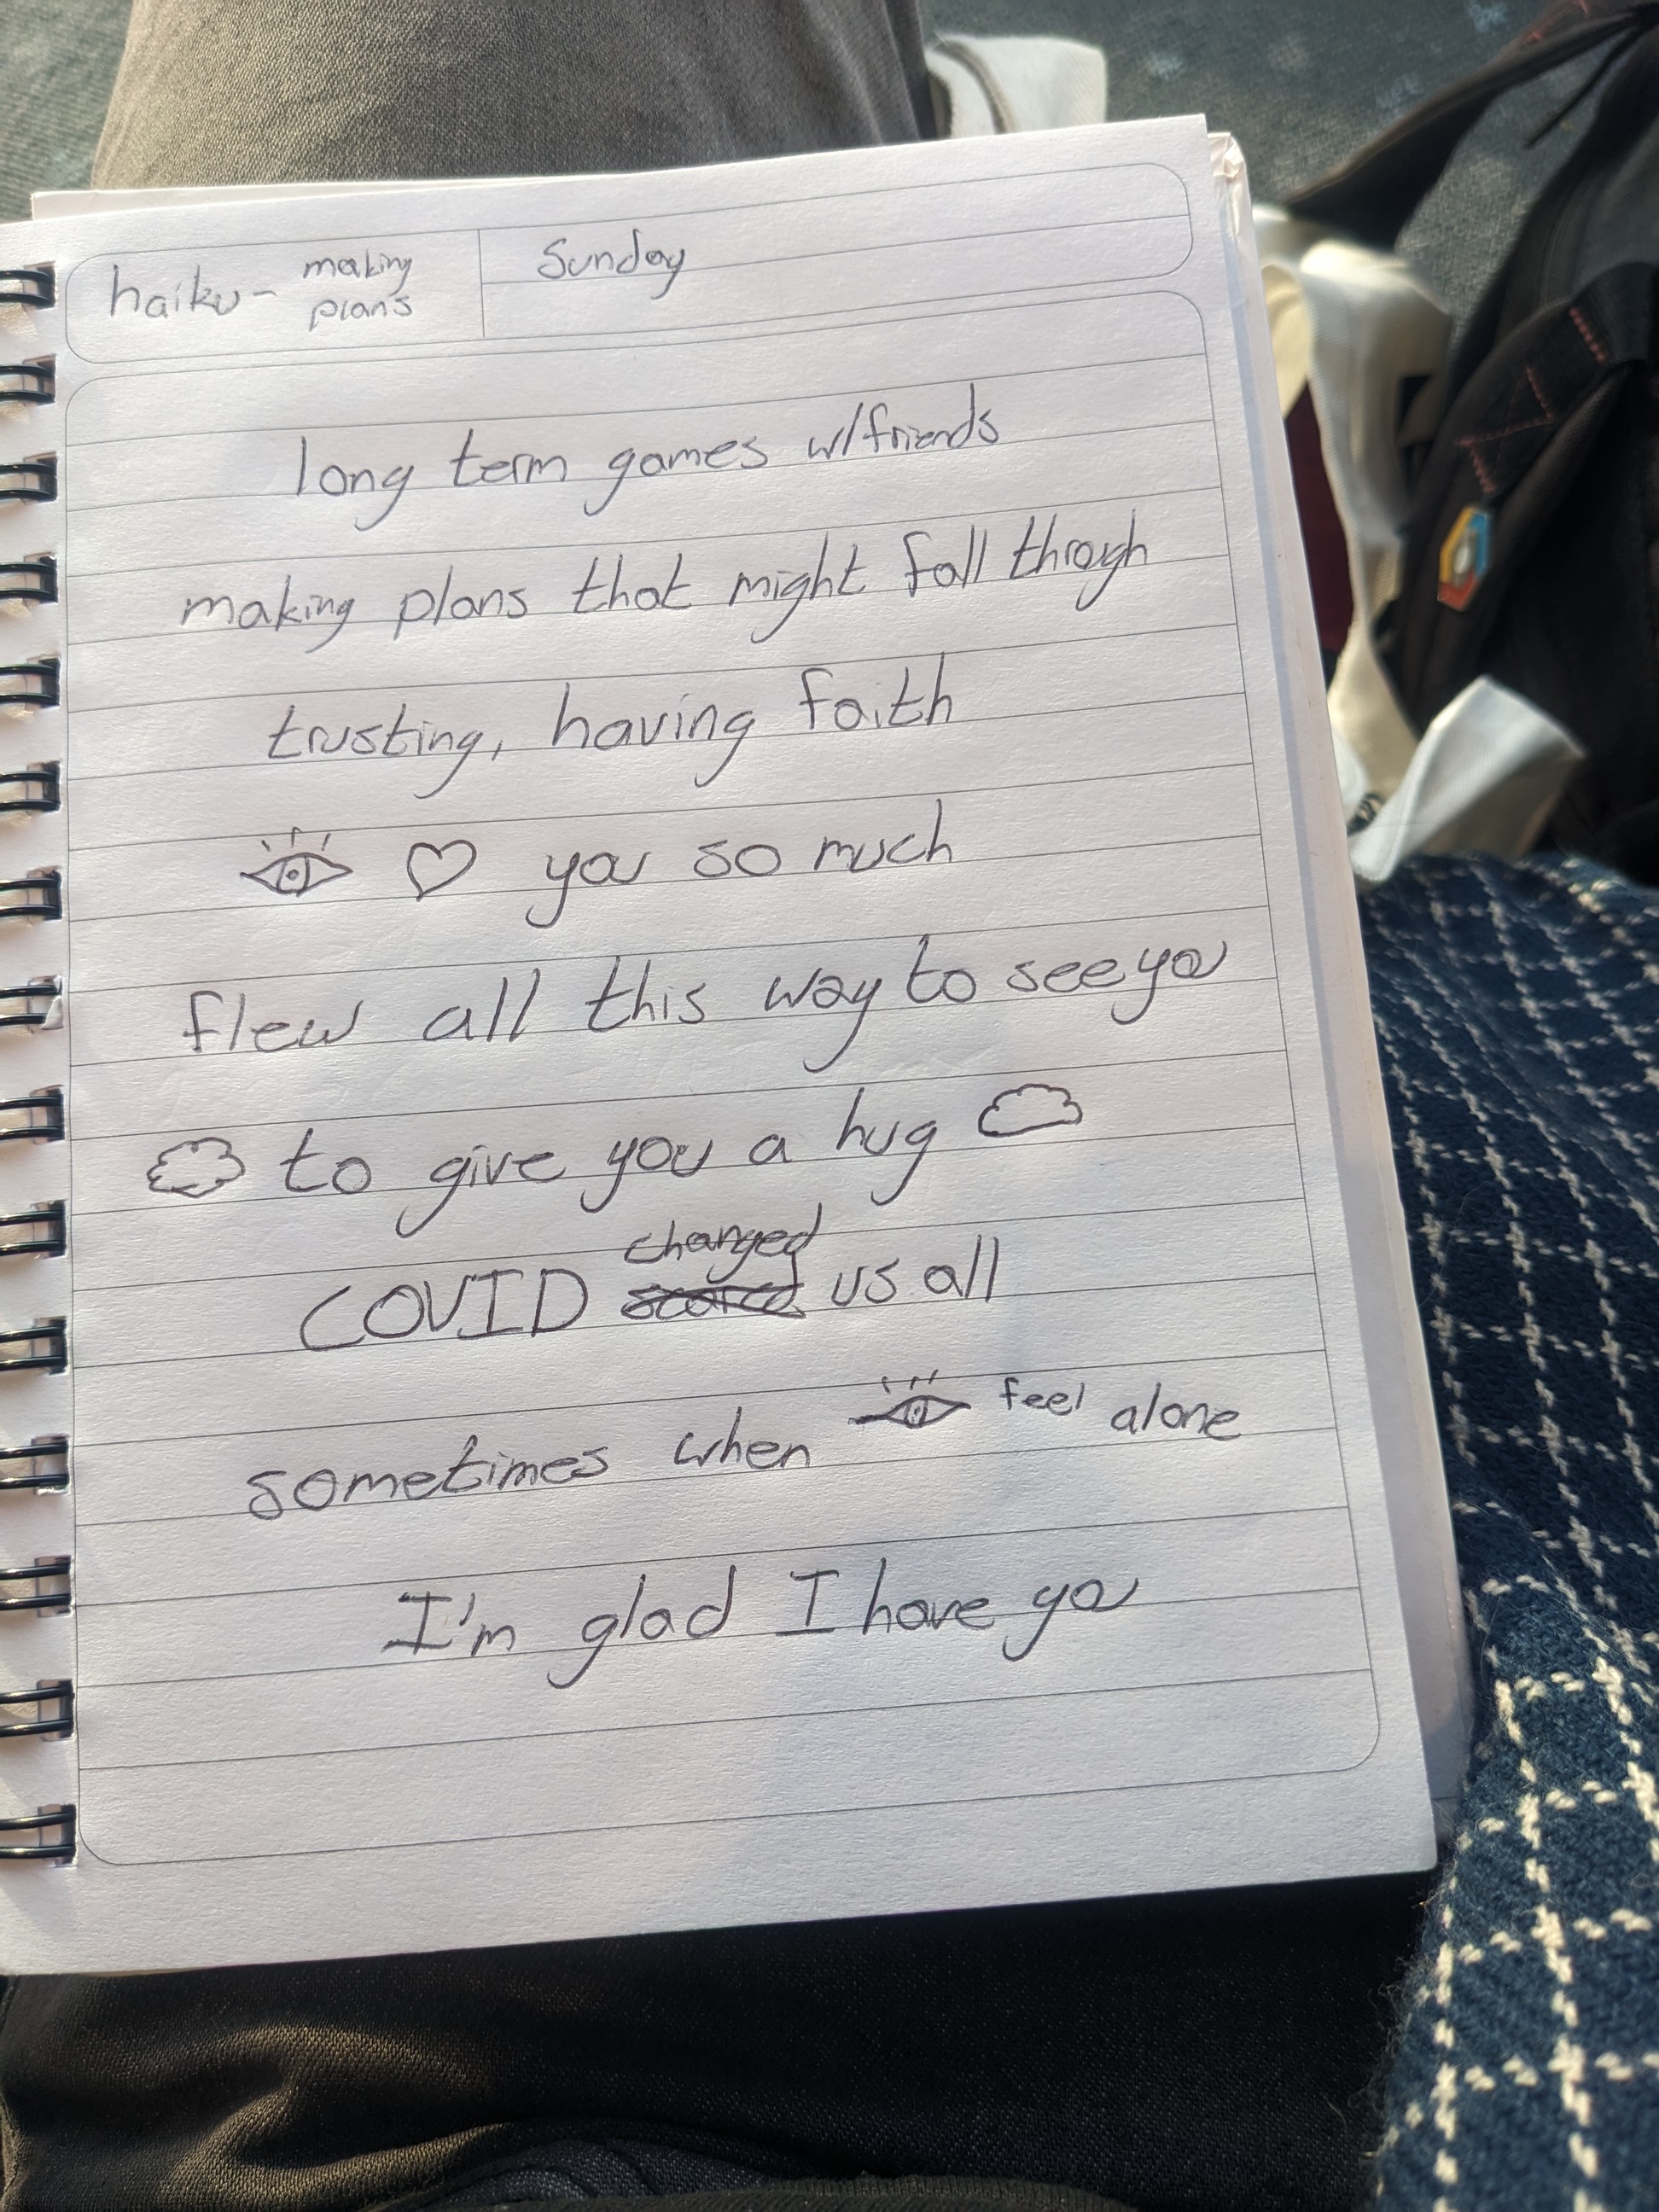 haiku - making plans
Sunday
long term games w/friends
making plans that might fall through
trusting, having faith
you so much
flew all this way to see you
to give you a hug
COVID changed us all
sometimes when feel alone
I'm glad I have you